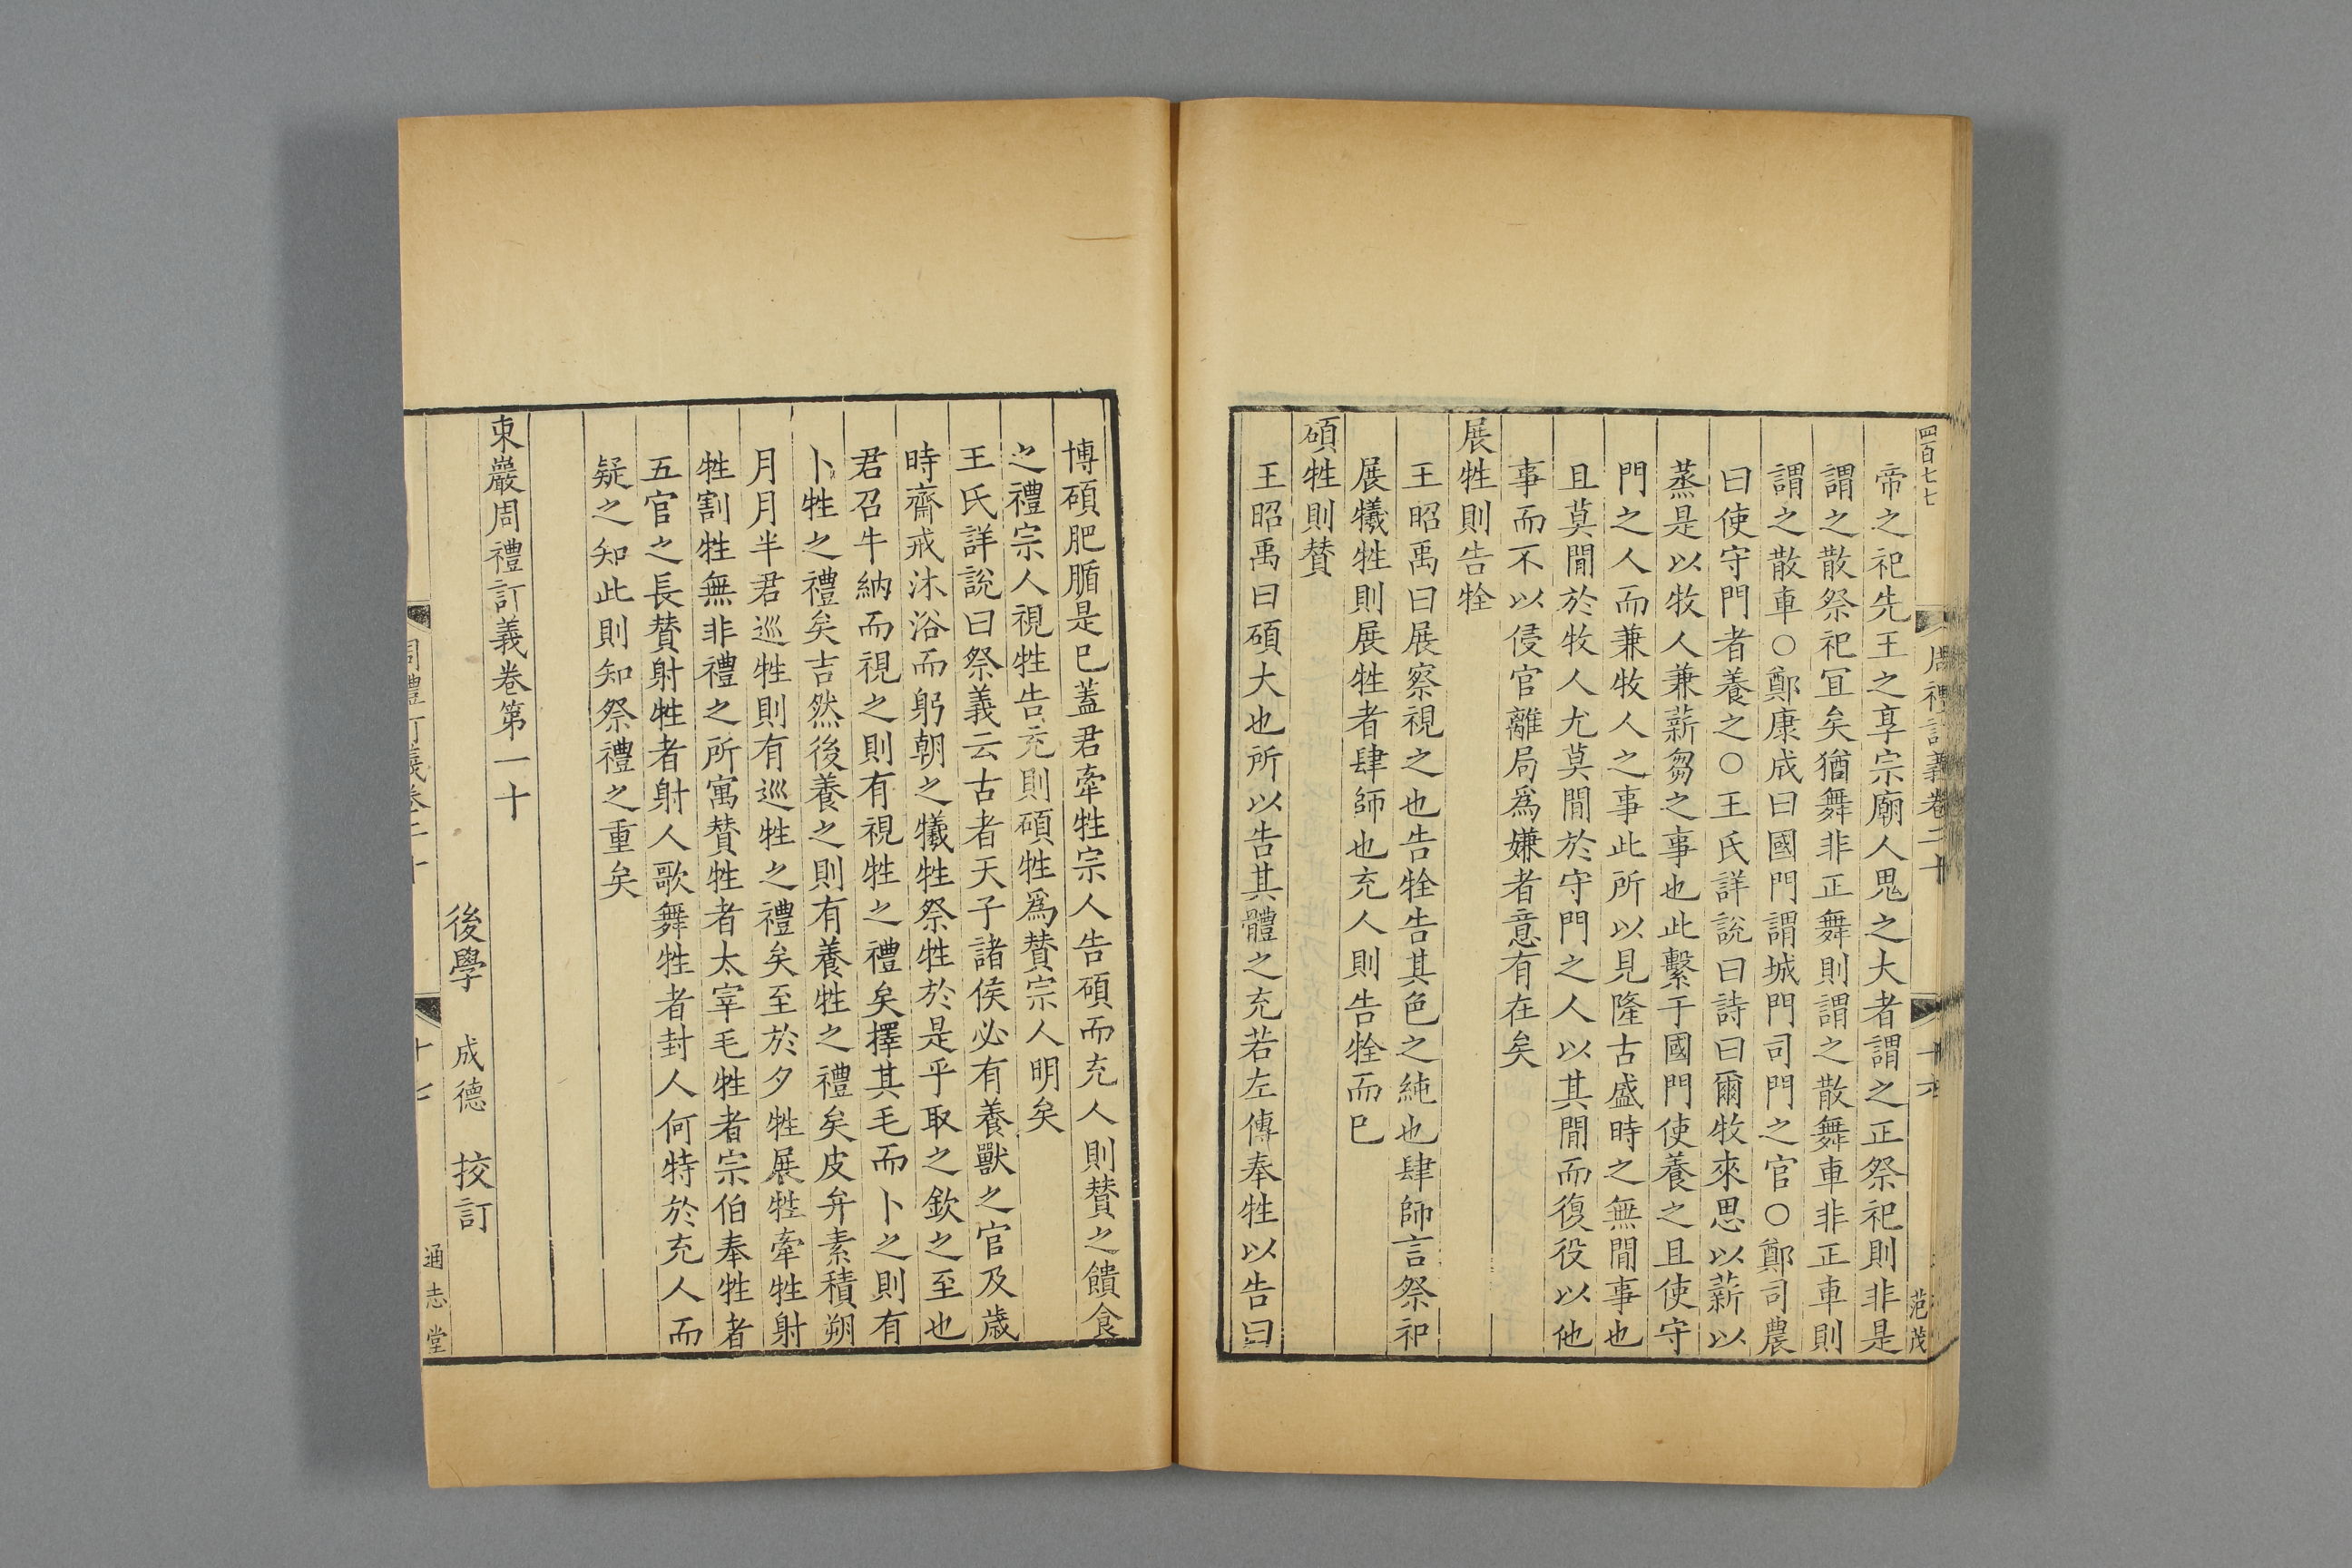 四百七七
周禮訂義卷二十
十六
范茂
帝之祀先王之享宗廟人鬼之大者謂之正祭祀則非是
謂之散祭祀宜矣猶舞非正舞則謂之散舞車非正車則
謂之散車○鄭康成曰國門謂城門司門之官○鄭司農
曰使守門者養之○王氏詳說曰詩曰爾牧來思以薪以
蒸是以牧人兼薪芻之事也此繫于國門使養之且使守
門之人而兼牧人之事此所以見隆古盛時之無閒事也
且莫閒於牧人尤莫閒於守門之人以其閒而復役以他
事而不以侵官離局爲嫌者意有在矣
展牲則告牷
王昭禹曰展察視之也告牷告其色之純也肆師言祭祀
展犧牲則展牲者肆師也充人則告牷而已
碩牲則贊
王昭禹曰碩大也所以告其體之充若左傳奉牲以告曰
博碩肥腯是已蓋君牽牲宗人告碩而充人則贊之饋食
之禮宗人視牲告充則碩牲爲贊宗人明矣
王氏詳說曰祭義云古者天子諸侯必有養獸之官及歲
時齋戒沐浴而躬朝之犧牲祭牲於是乎取之欽之至也
君召牛納而視之則有視牲之禮矣擇其毛而卜之則有
卜牲之禮矣吉然後養之則有養牲之禮矣皮弁素積朔
月月半君巡牲則有巡牲之禮矣至於夕牲展牲牽牲射
牲割牲無非禮之所寓贊牲者太宰毛牲者宗伯奉牲者
五官之長贊射牲者射人歌舞牲者封人何特於充人而
疑之知此則知祭禮之重矣
東巖周禮訂義卷第二十
後學 成德 挍訂
周禮訂義卷二十
十七
通志堂